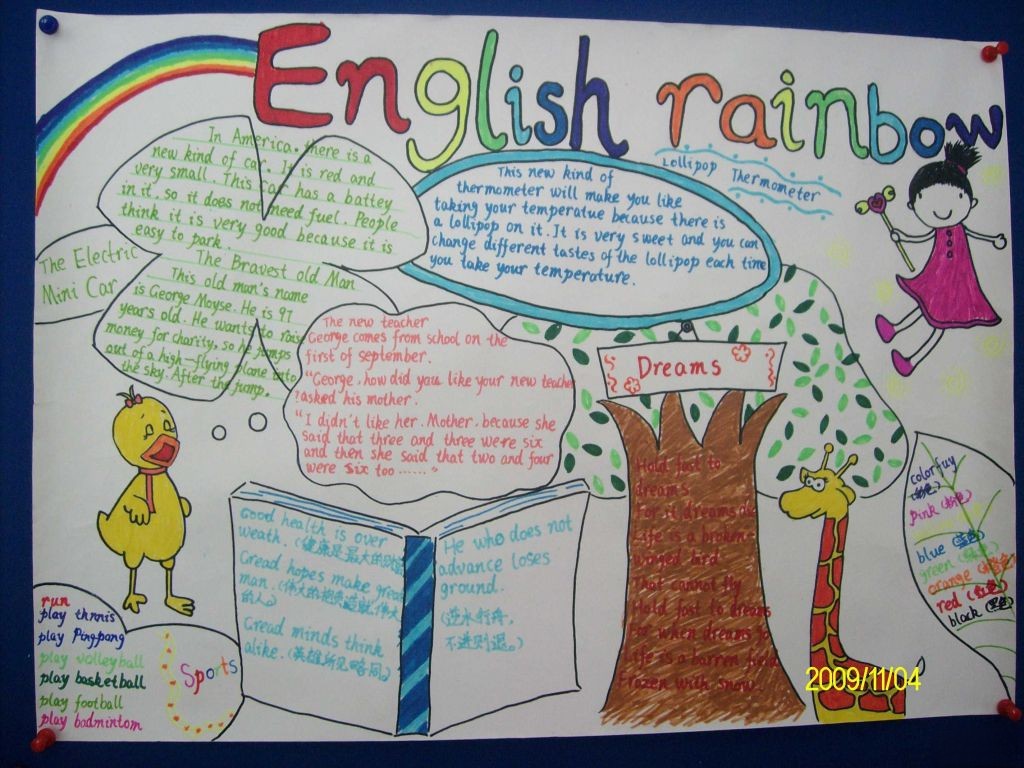 English rainbow
In America, there is a
new kind of car. It is red and
very small. This car has a battey
in it, so it does not need fuel. People
think it is very good because it is
easy to park.
The Electric
Mini Car
The Bravest old Man
This old man's name
is George Moyse. He is 97
years old. He wants to raise
money for charity, so he jumps
out of a high-flying plane into
the sky. After the jump.
Lollipop Thermometer
This new kind of
thermometer will make you like
taking your temperatue because there is
a lollipop on it. It is very sweet and you can
change different tastes of the lollipop each time
you take your temperature.
The new teacher
George comes from school on the
first of september.
"George, how did you like your new teacher
?asked his mother.
"I didn't like her. Mother, because she
said that three and three were six
and then she said that two and four
were six too ......"
Dreams
Hold fast to
dreams
For if dreams die
Life is a broken-
winged bird
That cannot fly
Hold fast to dreams
For when dreams go
Life is a barren field
Frozen with snow.
Good health is over
weath. (健康是最大的财富
Gread hopes make great
man. (伟大的抱负造就伟大
的人)
Gread minds think
alike. (英雄所见略同)
He who does not
advance loses
ground.
(逆水行舟,
不进则退。)
run
play thnnis
play Pingpong
play volleyball
play basketball
play football
play badmintom
Sports
colorfuy
pink (粉色)
blue (蓝色)
green (绿色)
orange (橙色)
red (红色)
black (黑色)
2009/11/04